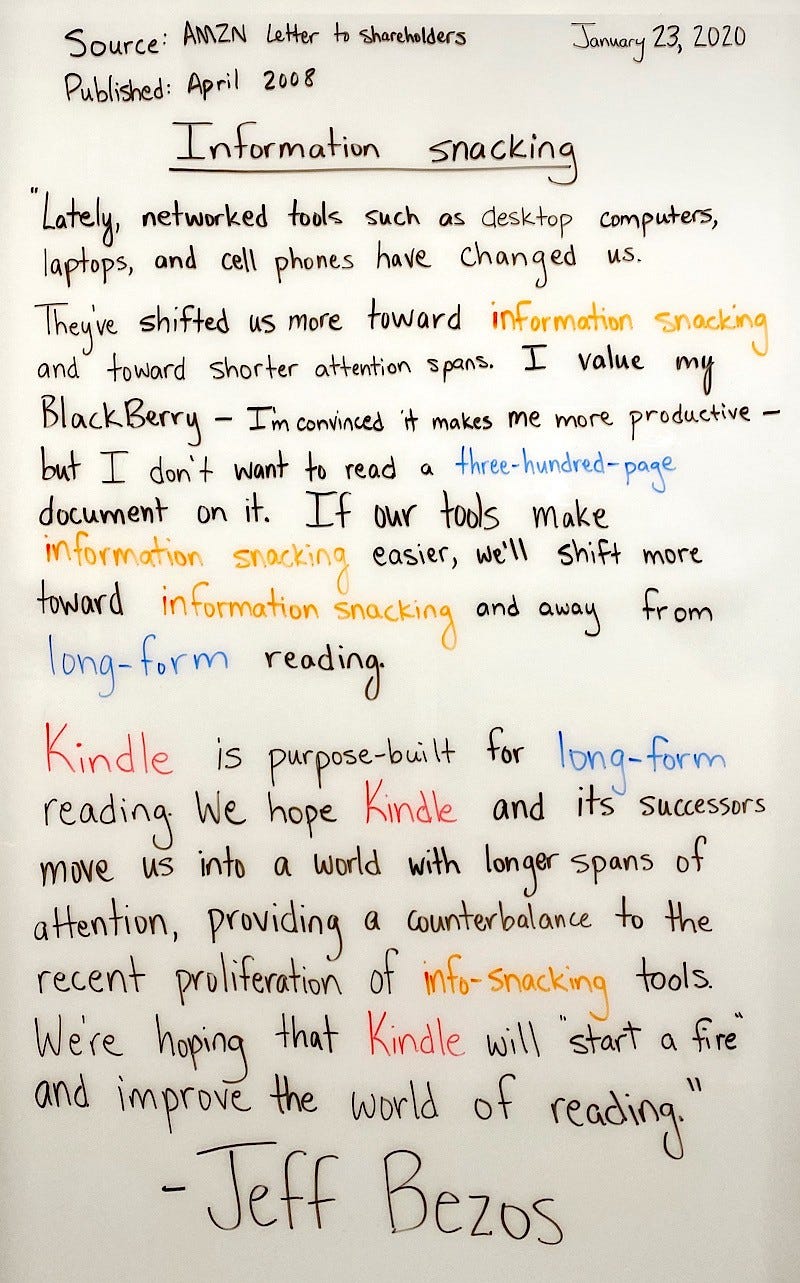 Source: AMZN Letter to shareholders January 23, 2020
Published: April 2008
Information snacking
"Lately, networked tools such as desktop computers,
laptops, and cell phones have changed us.
They've shifted us more toward information snacking
and toward shorter attention spans. I value my
BlackBerry – I'm convinced it makes me more productive –
but I don't want to read a three-hundred-page
document on it. If our tools make
information snacking easier, we'll shift more
toward information snacking and away from
long-form reading.
Kindle is purpose-built for long-form
reading. We hope Kindle and its successors
move us into a world with longer spans of
attention, providing a counterbalance to the
recent proliferation of info-snacking tools.
We're hoping that Kindle will "start a fire"
and improve the world of reading."
- Jeff Bezos